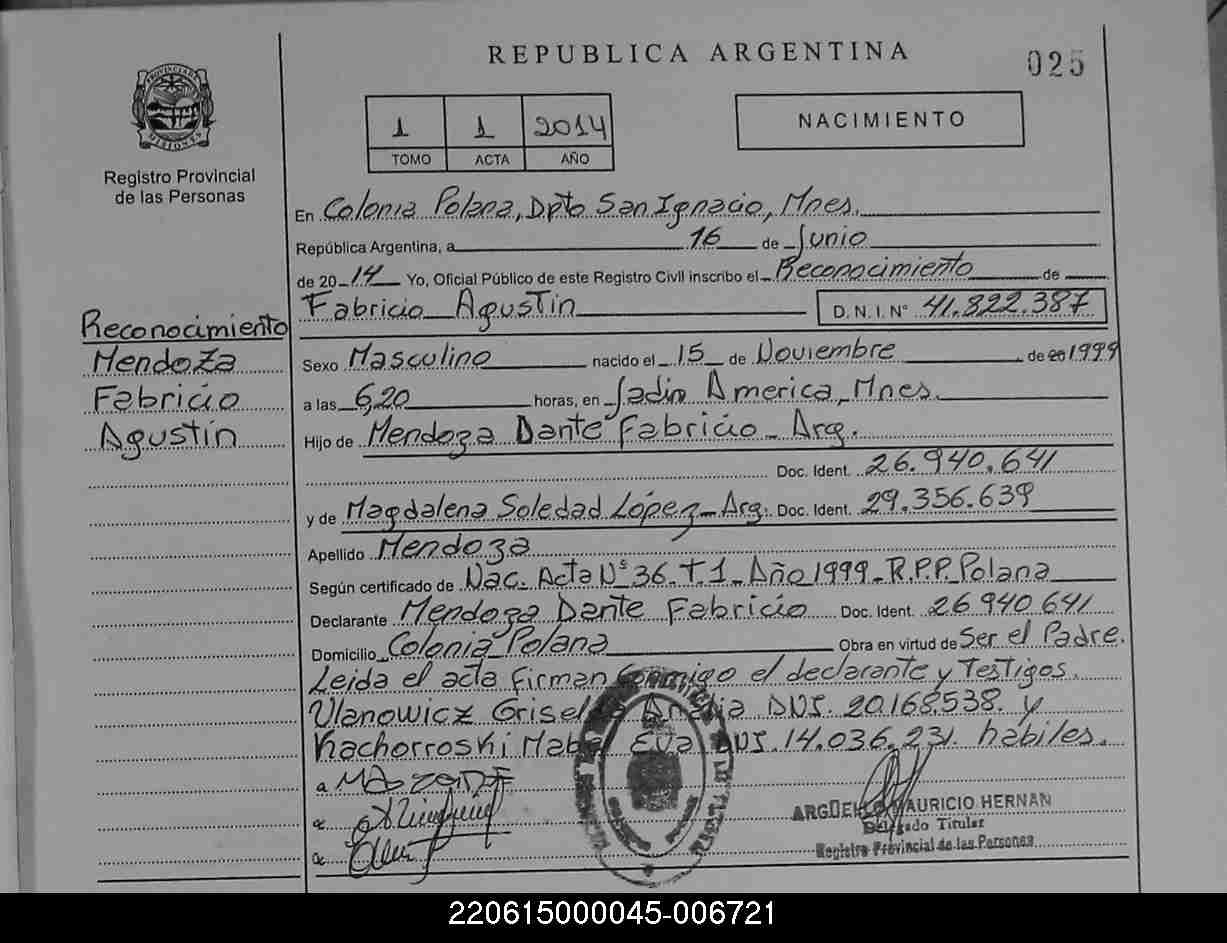 REPUBLICA ARGENTINA
025
PROVINCIA DE MISIONES
Registro Provincial
de las Personas
1 1 2014
TOMO ACTA AÑO
NACIMIENTO
En Colonia Polana, Dpto San Ignacio, Mnes.
República Argentina, a 16 de Junio
de 2014 Yo, Oficial Público de este Registro Civil inscribo el Reconocimiento de
Fabricio Agustin D.N.I. N° 41.822.387
Reconocimiento
Mendoza
Fabricio
Agustín
Sexo Masculino nacido el 15 de Noviembre de 20 1999
a las 6,20 horas, en Jadin America, Mnes.
Hijo de Mendoza Dante Fabricio - Arg.
Doc. Ident. 26.940.641
y de Magdalena Soledad López - Arg. Doc. Ident. 29.356.639
Apellido Mendoza
Según certificado de Nac. Acta Nº 36 - T.1 - Año 1999 - R.P.P. Polana
Declarante Mendoza Dante Fabricio Doc. Ident. 26.940.641
Domicilio Colonia Polana Obra en virtud de Ser el Padre.
Leida el acta firman conmigo el declarante y Testigos.
Ulanowicz Griselda Analia DNI. 20.168.538. y
Kachorroski Mabel Eva DNI. 14.036.231. hábiles.
ARGÜELLO MAURICIO HERNAN
Delegado Titular
Registro Provincial de las Personas
220615000045-006721